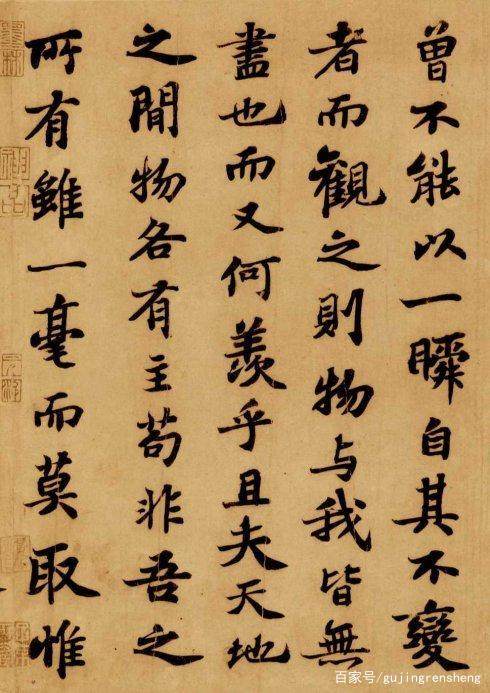 曾不能以一瞬自其不變
者而觀之則物与我皆無
盡也而又何羨乎且夫天地
之間物各有主苟非吾之
所有雖一毫而莫取惟
百家号/gujingrensheng